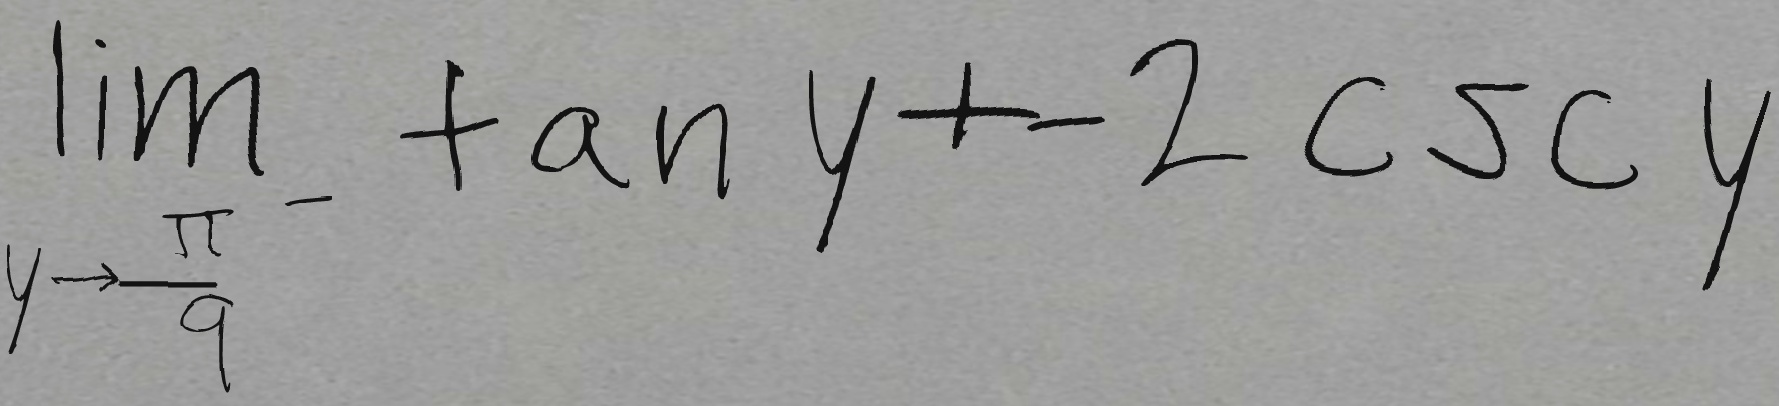 \lim_{y \to \frac{\pi}{9}^{-}} \tan y + -2 \csc y